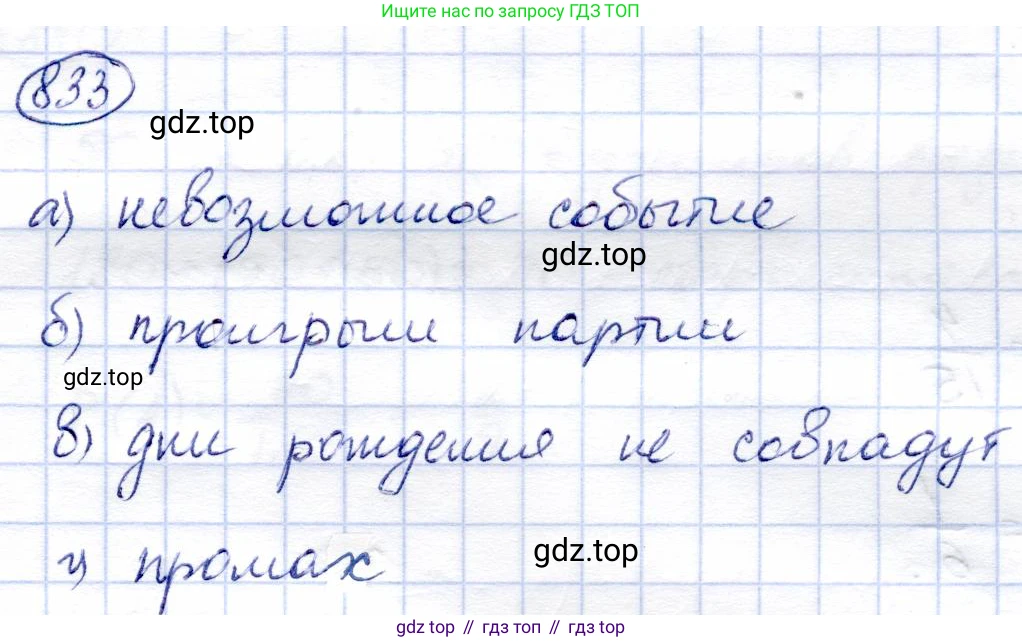 Ищите нас по запросу ГДЗ ТОП
833
gdz.top
а) невозможное событие
gdz.top
б) проигрыш партии
gdz.top
в) дни рождения не совпадут
gdz.top
г) промах
gdz.top // гдз топ // gdz top